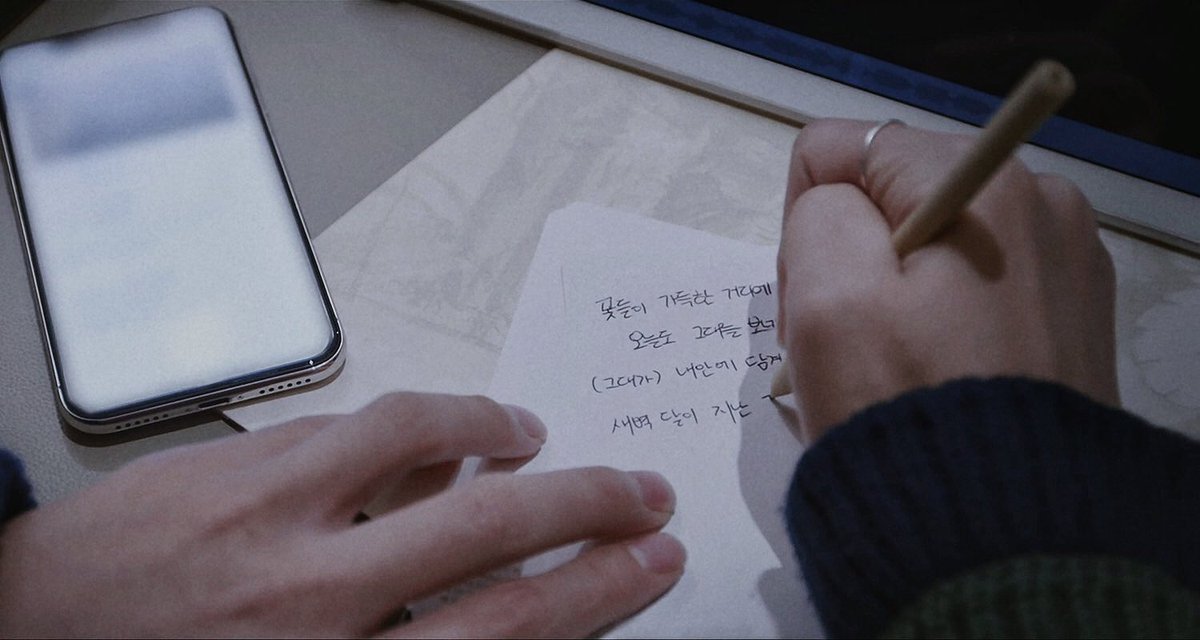 꽃들이 가득한 거리에
오늘도 그대를 보
(그대가) 내안에 담겨
새벽 달이 지난